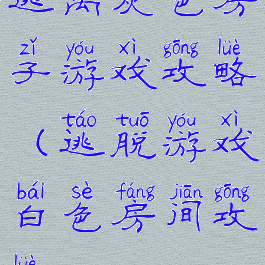 逃离灰色房
zǐ yóu xì gōng lüè
子游戏攻略
táo tuō yóu xì
（逃脱游戏
bái sè fáng jiān gōng
白色房间攻
lüè